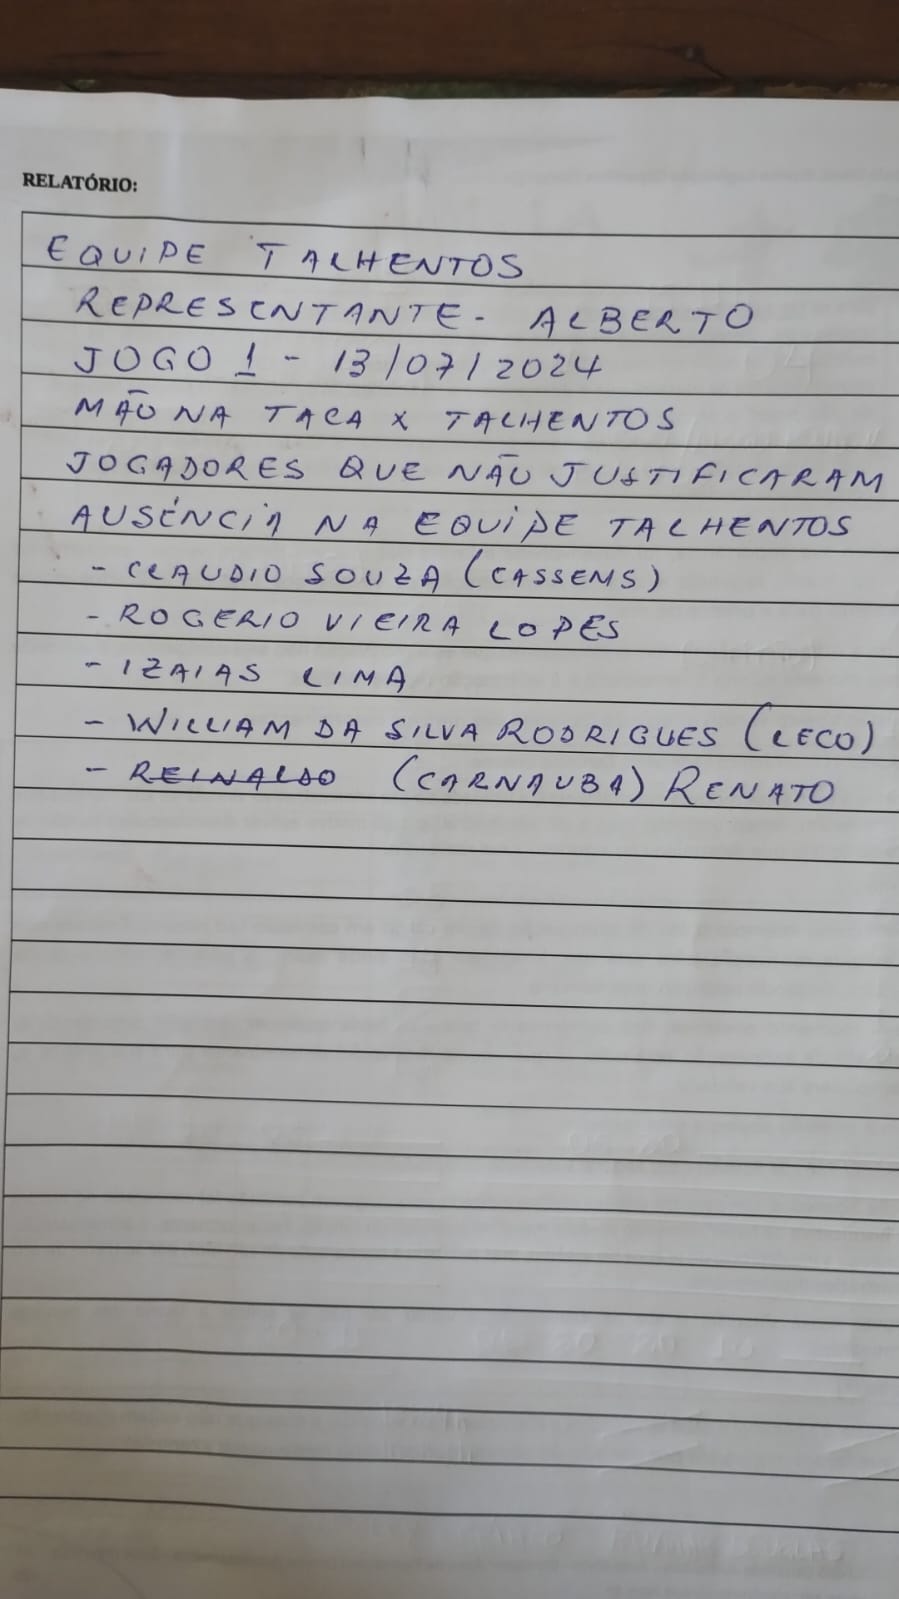 RELATÓRIO:
EQUIPE TALHENTOS
REPRESENTANTE - ALBERTO
JOGO 1 - 13/07/2024
MÃO NA TACA X TALHENTOS
JOGADORES QUE NÃO JUSTIFICARAM
AUSÊNCIA NA EQUIPE TALHENTOS
- CLAUDIO SOUZA (CASSEMS)
- ROGERIO VIEIRA LOPES
- IZAIAS LIMA
- WILLIAM DA SILVA RODRIGUES (LECO)
- REINALDO (CARNAUBA) RENATO